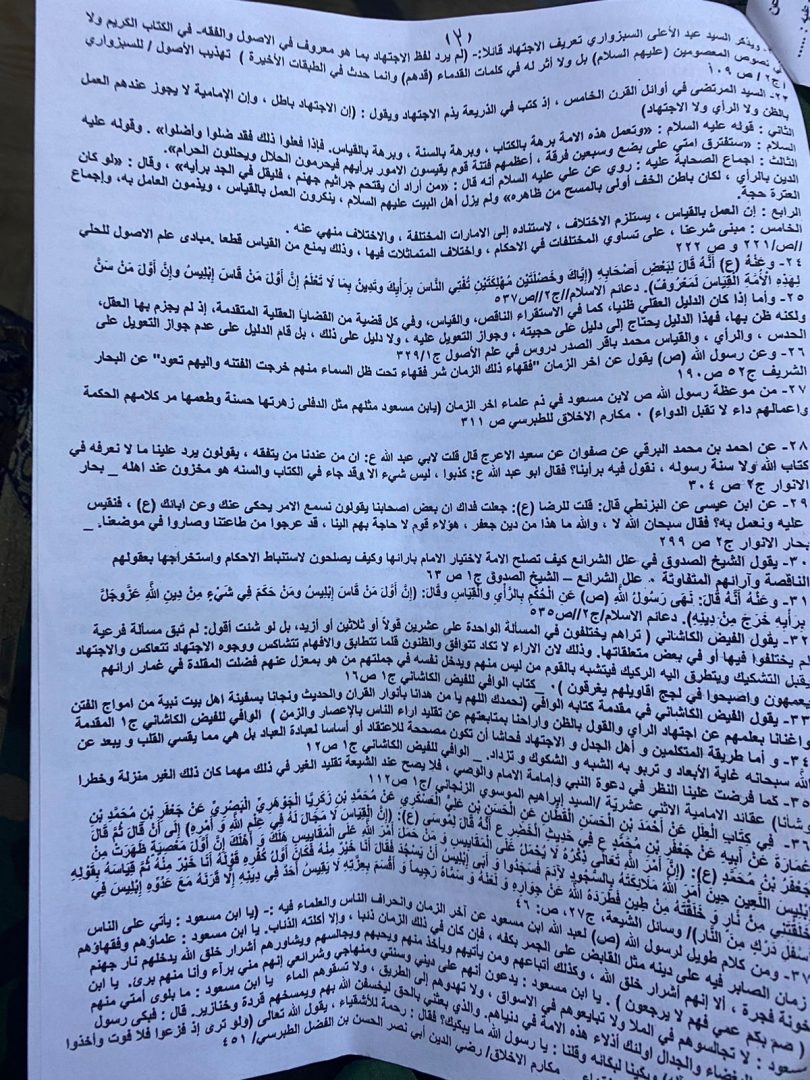 (٢)
- ويذكر السيد عبد الأعلى السبزواري تعريف الاجتهاد قائلا:- (لم يرد لفظ الاجتهاد بما هو معروف في الاصول والفقه- في الكتاب الكريم ولا
في نصوص المعصومين (عليهم السلام) بل ولا أثر له في كلمات القدماء (قدهم) وانما حدث في الطبقات الأخيرة ) تهذيب الأصول / للسبزواري
ج٢ / ص ١٠٩
٢٣- السيد المرتضى في أوائل القرن الخامس ، إذ كتب في الذريعة يذم الاجتهاد ويقول : (إن الاجتهاد باطل ، وإن الإمامية لا يجوز عندهم العمل
بالظن ولا الرأي ولا الاجتهاد)
الثاني : قوله عليه السلام : «وتعمل هذه الامة برهة بالكتاب ، وبرهة بالسنة ، وبرهة بالقياس. فإذا فعلوا ذلك فقد ضلوا وأضلوا» . وقوله عليه
السلام : «ستفترق امتي على بضع وسبعين فرقة ، أعظمهم فتنة قوم يقيسون الامور برأيهم فيحرمون الحلال ويحللون الحرام».
الثالث : اجماع الصحابة عليه : روي عن علي عليه السلام أنه قال : «من أراد أن يقتحم جراثيم جهنم ، فليقل في الجد برأيه» ، وقال : «لو كان
الدين بالرأي ، لكان باطن الخف أولى بالمسح من ظاهره» ولم يزل أهل البيت عليهم السلام ، ينكرون العمل بالقياس ، ويذمون العامل به، وإجماع
العترة حجة.
الرابع : إن العمل بالقياس ، يستلزم الاختلاف ، لاستناده إلى الامارات المختلفة ، والاختلاف منهي عنه .
الخامس : مبنى شرعنا ، على تساوي المختلفات في الاحكام ، واختلاف المتماثلات فيها ، وذلك يمنع من القياس قطعا .مبادى علم الاصول للحلي
//ص/٢٢١ و ص ٢٢٢
٢٤- وعنه (ع) أَنَّهُ قَالَ لِبَعْضِ أَصْحَابِهِ (إِيَّاكَ وَخَصْلَتَيْنِ مُهْلِكَتَيْنِ تُفْتِي النَّاسَ بِرَأْيِكَ وَتَدِينُ بِمَا لَا تَعْلَمُ إِنَّ أَوَّلَ مَنْ قَاسَ إِبْلِيسُ وإِنَّ أَوَّلَ مَنْ سَنَّ
لِهَذِهِ الْأُمَّةِ الْقِيَاسَ لَمَعْرُوفٌ). دعائم الاسلام//ج٢//ص٥٣٧
٢٥- وأما إذا كان الدليل العقلي ظنيا، كما في الاستقراء الناقص، والقياس، وفي كل قضية من القضايا العقلية المتقدمة، إذ لم يجزم بها العقل،
ولكنه ظن بها، فهذا الدليل يحتاج إلى دليل على حجيته ، وجواز التعويل عليه ، ولا دليل على ذلك ، بل قام الدليل على عدم جواز التعويل على
الحدس ، والرأي ، والقياس محمد باقر الصدر دروس في علم الأصول ج٣٢٩/١
٢٦- وعن رسول الله (ص) يقول عن اخر الزمان "فقهاء ذلك الزمان شر فقهاء تحت ظل السماء منهم خرجت الفتنه واليهم تعود" عن البحار
الشريف ج٥٢ ص١٩٠
٢٧- من موعظة رسول الله ص لابن مسعود في ذم علماء اخر الزمان (يابن مسعود مثلهم مثل الدفلى زهرتها حسنة وطعمها مر كلامهم الحكمة
واعمالهم داء لا تقبل الدواء) . مكارم الاخلاق للطبرسي ص ٣١١
٢٨- عن احمد بن محمد البرقي عن صفوان عن سعيد الاعرج قال قلت لابي عبد الله ع: ان من عندنا من يتفقه ، يقولون يرد علينا ما لا نعرفه في
كتاب الله ولا سنة رسوله ، نقول فيه برأينا؟ فقال ابو عبد الله ع: كذبوا ، ليس شيء الا وقد جاء في الكتاب والسنه هو مخزون عند اهله _ بحار
الانوار ج٢ ص ٣٠٤
٢٩- عن ابن عيسى عن البزنطي قال: قلت للرضا (ع): جعلت فداك ان بعض اصحابنا يقولون نسمع الامر يحكى عنك وعن ابائك (ع) ، فنقيس
عليه ونعمل به؟ فقال سبحان الله لا ، والله ما هذا من دين جعفر ، هؤلاء قوم لا حاجة بهم الينا ، قد عرجوا من طاعتنا وصاروا في موضعنا. _
بحار الانوار ج٢ ص ٢٩٩
٣٠- يقول الشيخ الصدوق في علل الشرائع كيف تصلح الامة لاختيار الامام بارائها وكيف يصلحون لاستنباط الاحكام واستخراجها بعقولهم
الناقصة وآرائهم المتفاوتة . علل الشرائع – الشيخ الصدوق ج١ ص ٦٣
٣١- وعَنْهُ أَنَّهُ قَالَ: نَهَى رَسُولُ اللَّهِ (ص) عَنِ الْحُكْمِ بِالرَّأْيِ والْقِيَاسِ وقَالَ: (إِنَّ أَوَّلَ مَنْ قَاسَ إِبْلِيسُ ومَنْ حَكَمَ فِي شَيْءٍ مِنْ دِينِ اللَّهِ عَزَّوجَلَّ
بِرَأْيِهِ خَرَجَ مِنْ دِينِهِ). دعائم الاسلام/ج٢//ص٥٣٥
٣٢- يقول الفيض الكاشاني ( تراهم يختلفون في المسألة الواحدة على عشرين قولاً أو ثلاثين أو أزيد، بل لو شئت أقول: لم تبق مسألة فرعية
لم يختلفوا فيها أو في بعض متعلقاتها. وذلك لان الاراء لا تكاد تتوافق والظنون قلما تتطابق والافهام تتشاكس ووجوه الاجتهاد تتعاكس والاجتهاد
يقبل التشكيك ويتطرق اليه الركيك فيتشبه بالقوم من ليس منهم ويدخل نفسه في جملتهم من هو بمعزل عنهم فضلت المقلدة في غمار ارائهم
يعمهون واصبحوا في لجج اقاويلهم يغرقون ). _ كتاب الوافي للفيض الكاشاني ج١ ص١٦
٣٣- يقول الفيض الكاشاني في مقدمة كتابه الوافي (نحمدك اللهم يا من هدانا بأنوار القران والحديث ونجانا بسفينة اهل بيت نبيه من امواج الفتن
واغنانا بعلمهم عن اجتهاد الرأي والقول بالظن واراحنا بمتابعتهم عن تقليد اراء الناس بالإعصار والزمن ) الوافي للفيض الكاشاني ج١ المقدمة
٣٤- و أما طريقة المتكلمين و أهل الجدل و الاجتهاد فحاشا أن تكون مصححة للاعتقاد أو أساسا لعبادة العباد بل هي مما يقسي القلب و يبعد عن
الله سبحانه غاية الأبعاد و تربو به الشبه و الشكوك و تزداد. _ الوافي للفيض الكاشاني ج١ ص١٢
٣٥- كما فرضت علينا النظر في دعوة النبي وإمامة الامام والوصي ، فلا يصح عند الشيعة تقليد الغير في ذلك مهما كان ذلك الغير منزلة وخطرا
وشأنا) عقائد الامامية الاثني عشرية /السيد إبراهيم الموسوي الزنجاني /ج١ ص١١٢
٣٦- فِي كِتَابِ الْعِلَلِ عَنْ أَحْمَدَ بْنِ الْحَسَنِ الْقَطَّانِ عَنِ الْحَسَنِ بْنِ عَلِيٍّ الْعَسْكَرِيِّ عَنْ مُحَمَّدِ بْنِ زَكَرِيَّا الْجَوْهَرِيِّ الْبَصْرِيِّ عَنْ جَعْفَرِ بْنِ مُحَمَّدِ بْنِ
عُمَارَةَ عَنْ أَبِيهِ عَنْ جَعْفَرِ بْنِ مُحَمَّدٍ ع فِي حَدِيثِ الْخَضِرِ ع أَنَّهُ قَالَ لِمُوسَى (ع): (إِنَّ الْقِيَاسَ لَا مَجَالَ لَهُ فِي عِلْمِ اللَّهِ وَ أَمْرِهِ) إِلَى أَنْ قَالَ ثُمَّ قَالَ
جَعْفَرُ بْنُ مُحَمَّدٍ (ع): (إِنَّ أَمْرَ اللَّهِ تَعَالَى ذِكْرُهُ لَا يُحْمَلُ عَلَى الْمَقَايِيسِ وَ مَنْ حَمَلَ أَمْرَ اللَّهِ عَلَى الْمَقَايِيسِ هَلَكَ وَ أَهْلَكَ إِنَّ أَوَّلَ مَعْصِيَةٍ ظَهَرَتْ مِنْ
إِبْلِيسَ اللَّعِينِ حِينَ أَمَرَ اللَّهُ مَلَائِكَتَهُ بِالسُّجُودِ لآِدَمَ فَسَجَدُوا وَ أَبَى إِبْلِيسُ أَنْ يَسْجُدَ فَقَالَ أَنَا خَيْرٌ مِنْهُ فَكَانَ أَوَّلُ كُفْرِهِ قَوْلَهُ أَنَا خَيْرٌ مِنْهُ ثُمَّ قِيَاسَهُ بِقَوْلِهِ
خَلَقْتَنِي مِنْ نَارٍ وَ خَلَقْتَهُ مِنْ طِينٍ فَطَرَدَهُ اللَّهُ عَنْ جِوَارِهِ وَ لَعَنَهُ وَ سَمَّاهُ رَجِيماً وَ أَقْسَمَ بِعِزَّتِهِ لَا يَقِيسُ أَحَدٌ فِي دِينِهِ إِلَّا قَرَنَهُ مَعَ عَدُوِّهِ إِبْلِيسَ فِي
أَسْفَلِ دَرَكٍ مِنَ النَّارِ)/ وسائل الشيعة، ج٢٧، ص: ٤٦
٣٧- ومن كلام طويل لرسول الله (ص) لعبد الله ابن مسعود عن آخر الزمان وانحراف الناس والعلماء فيه :- (يا ابن مسعود : يأتي على الناس
زمان الصابر فيه على دينه مثل القابض على الجمر بكفه ، فإن كان في ذلك الزمان ذئبا ، وإلا أكلته الذئاب. يا ابن مسعود : علماؤهم وفقهاؤهم
خونة فجرة ، ألا إنهم أشرار خلق الله ، وكذلك أتباعهم ومن يأتيهم ويأخذ منهم ويحبهم ويجالسهم ويشاورهم أشرار خلق الله يدخلهم نار جهنم
( صم بكم عمي فهم لا يرجعون ) . يا ابن مسعود : يدعون أنهم على ديني وسنتي ومنهاجي وشرائعي إنهم مني برآء وأنا منهم برئ. يا ابن
مسعود : لا تجالسوهم في الملا ولا تبايعوهم في الاسواق ، ولا تهدوهم إلى الطريق ، ولا تسقوهم الماء يا ابن مسعود : ما بلوى أمتي منهم
والبغضاء والجدال اولئك أذلاء هذه الامة في دنياهم. والذي بعثني بالحق ليخسفن الله بهم ويمسخهم قردة وخنازير. قال : فبكى رسول
وبكينا لبكائه وقلنا : يا رسول الله ما يبكيك؟ فقال : رحمة للأشقياء ، يقول الله تعالى (ولو ترى إذ فزعوا فلا فوت وأخذوا
مكارم الاخلاق/ رضي الدين أبي نصر الحسن بن الفضل الطبرسي/ ٤٥١